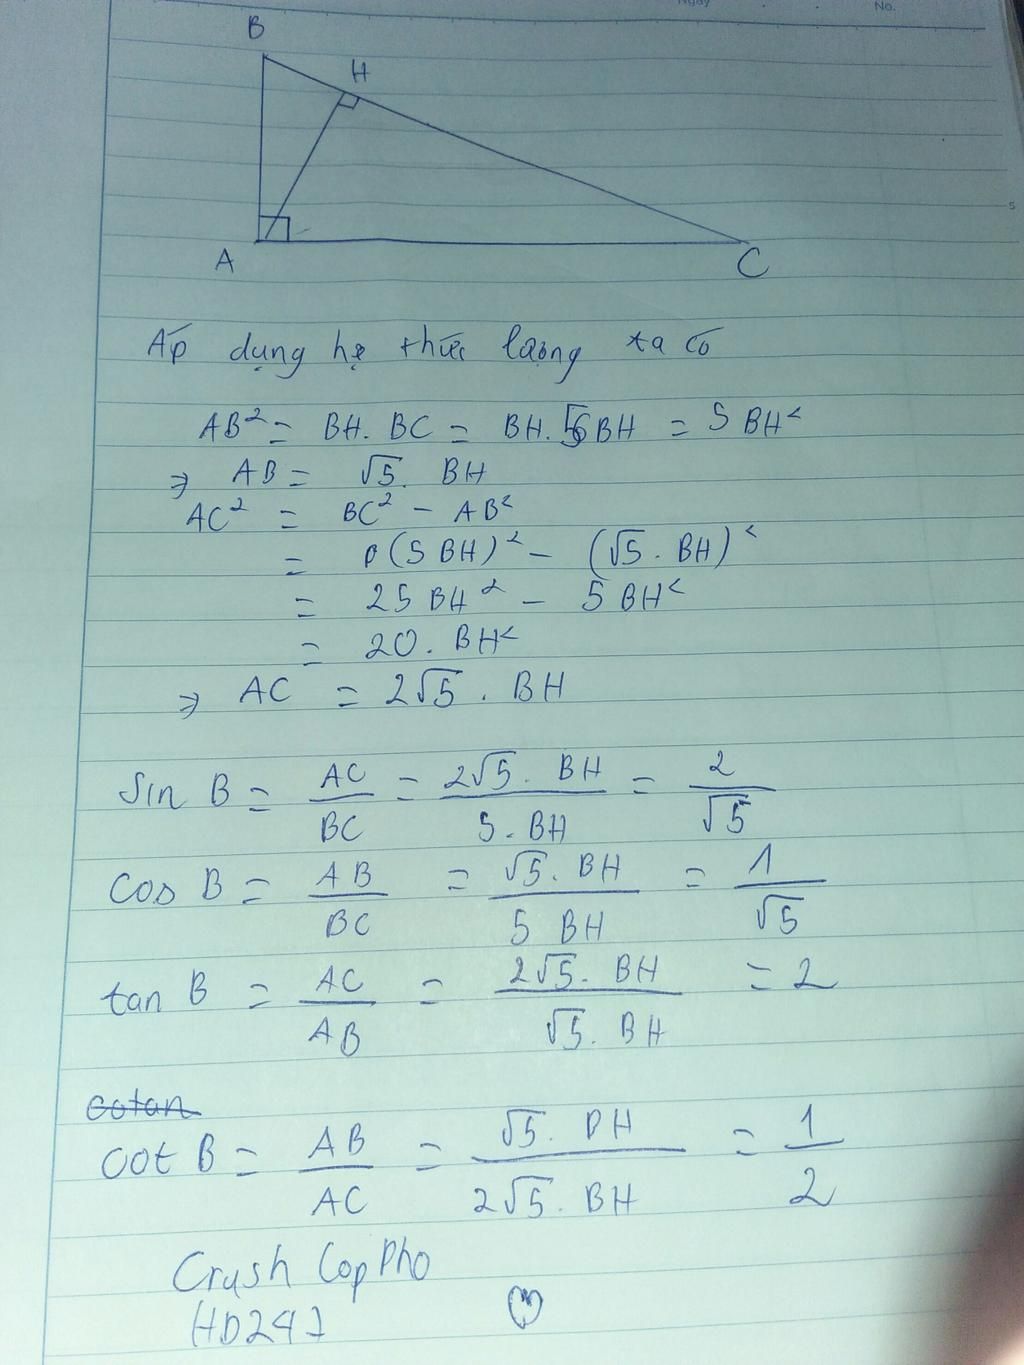 Ngày No.
B
H
A
C
5
Áp dụng hệ thức lượng ta có
AB² = BH. BC = BH. 5BH = 5 BH²
⇒ AB = √5. BH
AC² = BC² - AB²
= (5 BH)² - (√5 . BH)²
= 25 BH² - 5 BH²
= 20 . BH²
⇒ AC = 2√5 . BH
Sin B = AC/BC = 2√5 . BH/5 . BH = 2/√5
Cos B = AB/BC = √5 . BH/5 BH = 1/√5
tan B = AC/AB = 2√5 . BH/√5 . BH = 2
cotan
cot B = AB/AC = √5 . BH/2√5 . BH = 1/2
Crush Cop Pho
HD247